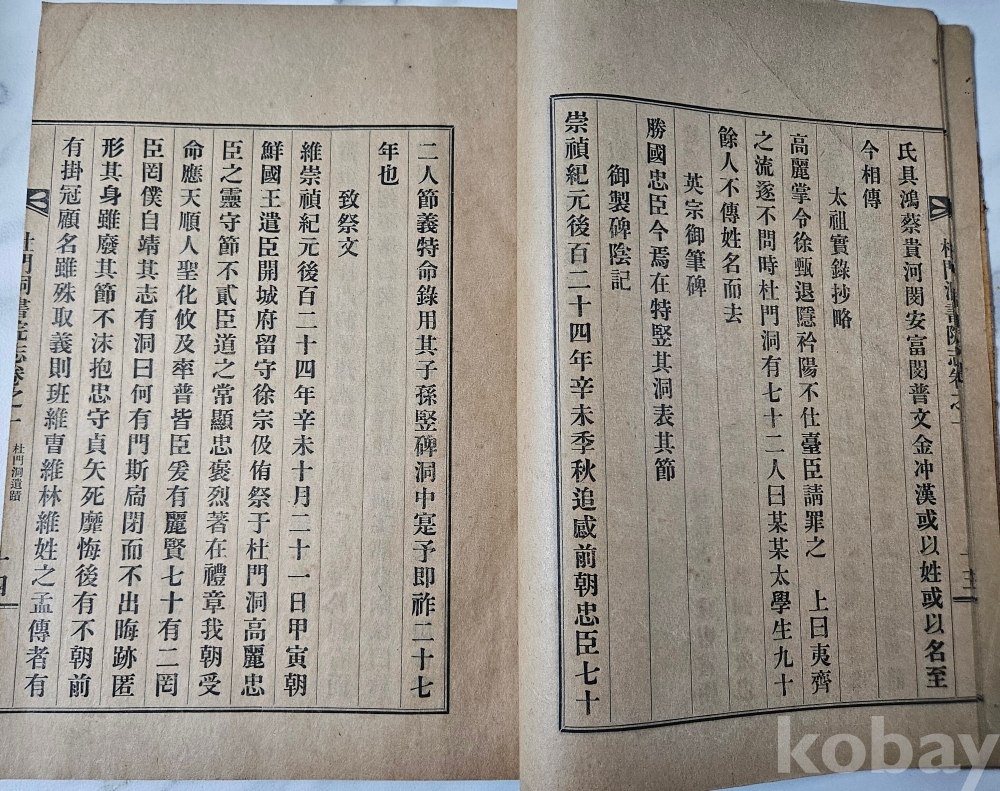 氏具鴻蔡貴河閔安富閔普文金冲漢或以姓或以名至
今相傳
太祖實錄抄略
高麗掌令徐甄退隱衿陽不仕臺臣請罪之 上曰夷齊
之流遂不問時杜門洞有七十二人曰某某太學生九十
餘人不傳姓名而去
英宗御筆碑
勝國忠臣今焉在特竪其洞表其節
御製碑陰記
崇禎紀元後百二十四年辛未季秋追感前朝忠臣七十
二人節義特命錄用其子孫竪碑洞中寔予即祚二十七
年也
致祭文
維崇禎紀元後百二十四年辛未十月二十一日甲寅朝
鮮國王遣臣開城府留守徐宗伋侑祭于杜門洞高麗忠
臣之靈守節不貳臣道之常顯忠褒烈著在禮章我朝受
命應天順人聖化攸及率普皆臣爰有麗賢七十有二罔
臣罔僕自靖其志有洞曰何有門斯扃閉而不出晦跡匿
形其身雖廢其節不沫抱忠守貞矢死靡悔後有不朝前
有掛冠顧名雖殊取義則班維曺維林維姓之孟傳者有
杜門洞書院志卷之一
杜門洞遺蹟
十四
kobay